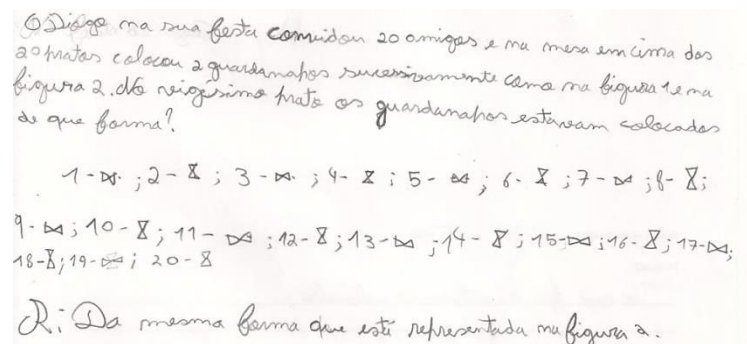 O Diogo na sua festa convidou 20 amigos e na mesa em cima dos
20 pratos colocou 2 guardanapos sucessivamente como na figura 1 e na
figura 2. No vigésimo prato os guardanapos estavam colocados
de que forma?
1-⋈ ; 2-⧖ ; 3-⋈ ; 4-⧖ ; 5-⋈ ; 6-⧖ ; 7-⋈ ; 8-⧖ ;
9-⋈ ; 10-⧖ ; 11-⋈ ; 12-⧖ ; 13-⋈ ; 14-⧖ ; 15-⋈ ; 16-⧖ ; 17-⋈ ;
18-⧖ ; 19-⋈ ; 20-⧖
R: Da mesma forma que está representada na figura 2.